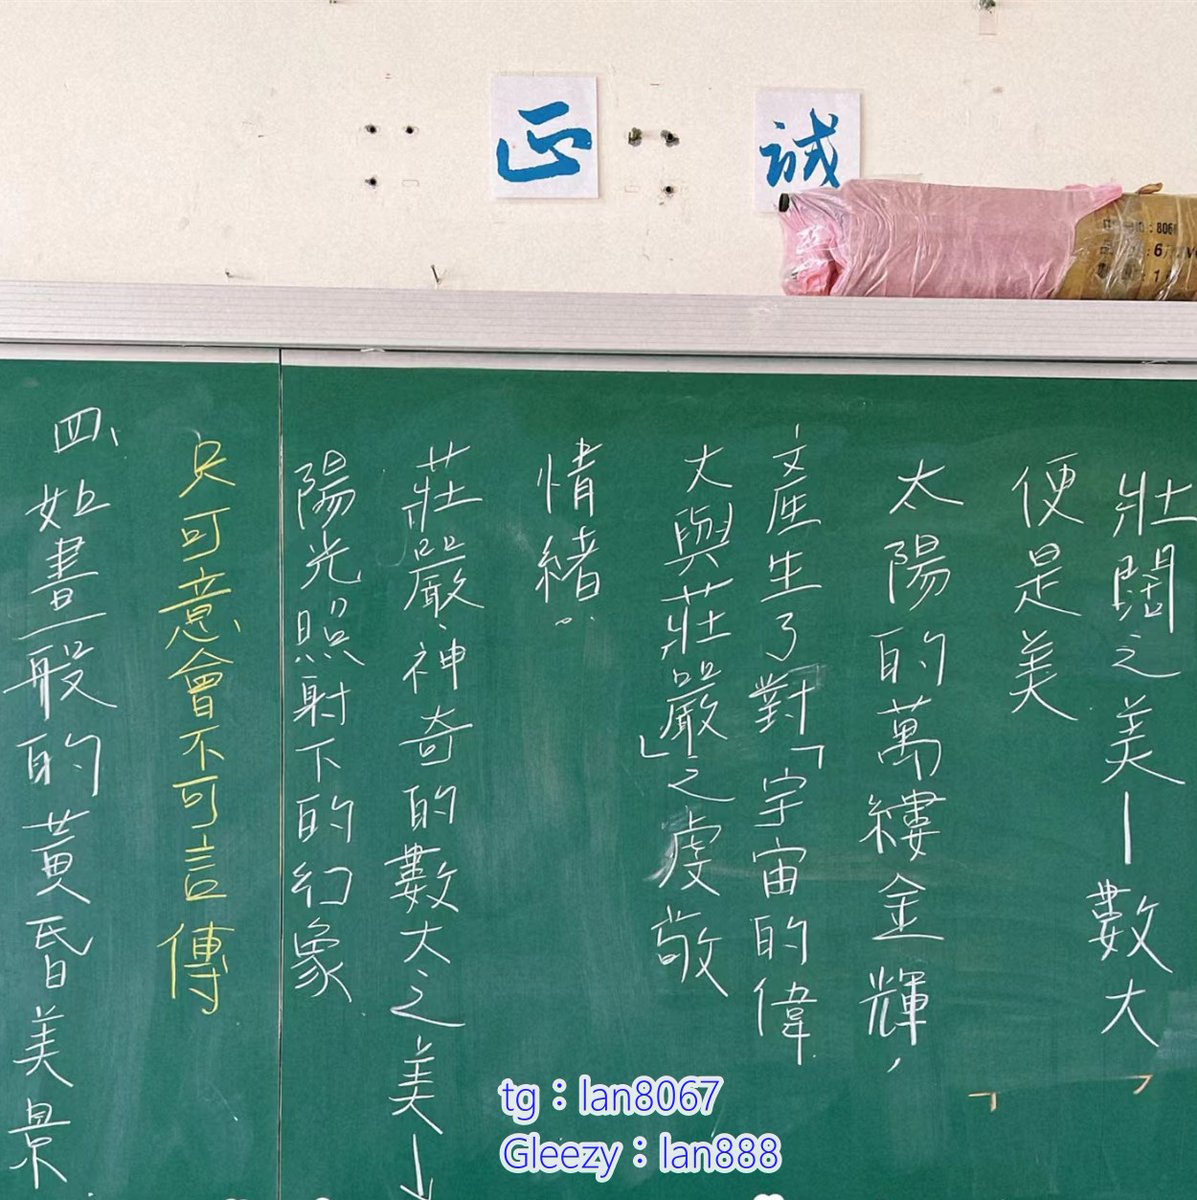 誠正
8061
6
1
壯闊之美—數大
便是美
太陽的萬縷金輝，
產生了對「宇宙的偉
大與莊嚴」之虔敬
情緒。
莊嚴、神奇的數大之美—
陽光照射下的幻象
只可意會不可言傳
四、如畫一般的黃昏美景
tg：lan8067
Gleezy：lan888